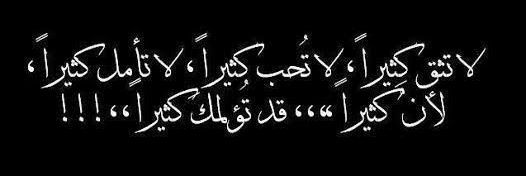 لا تثق كثيراً، لا تُحب كثيراً، لا تأمل كثيراً،
لأن كثيراً ،،،، قد تُؤلمك كثيراً،،!!!